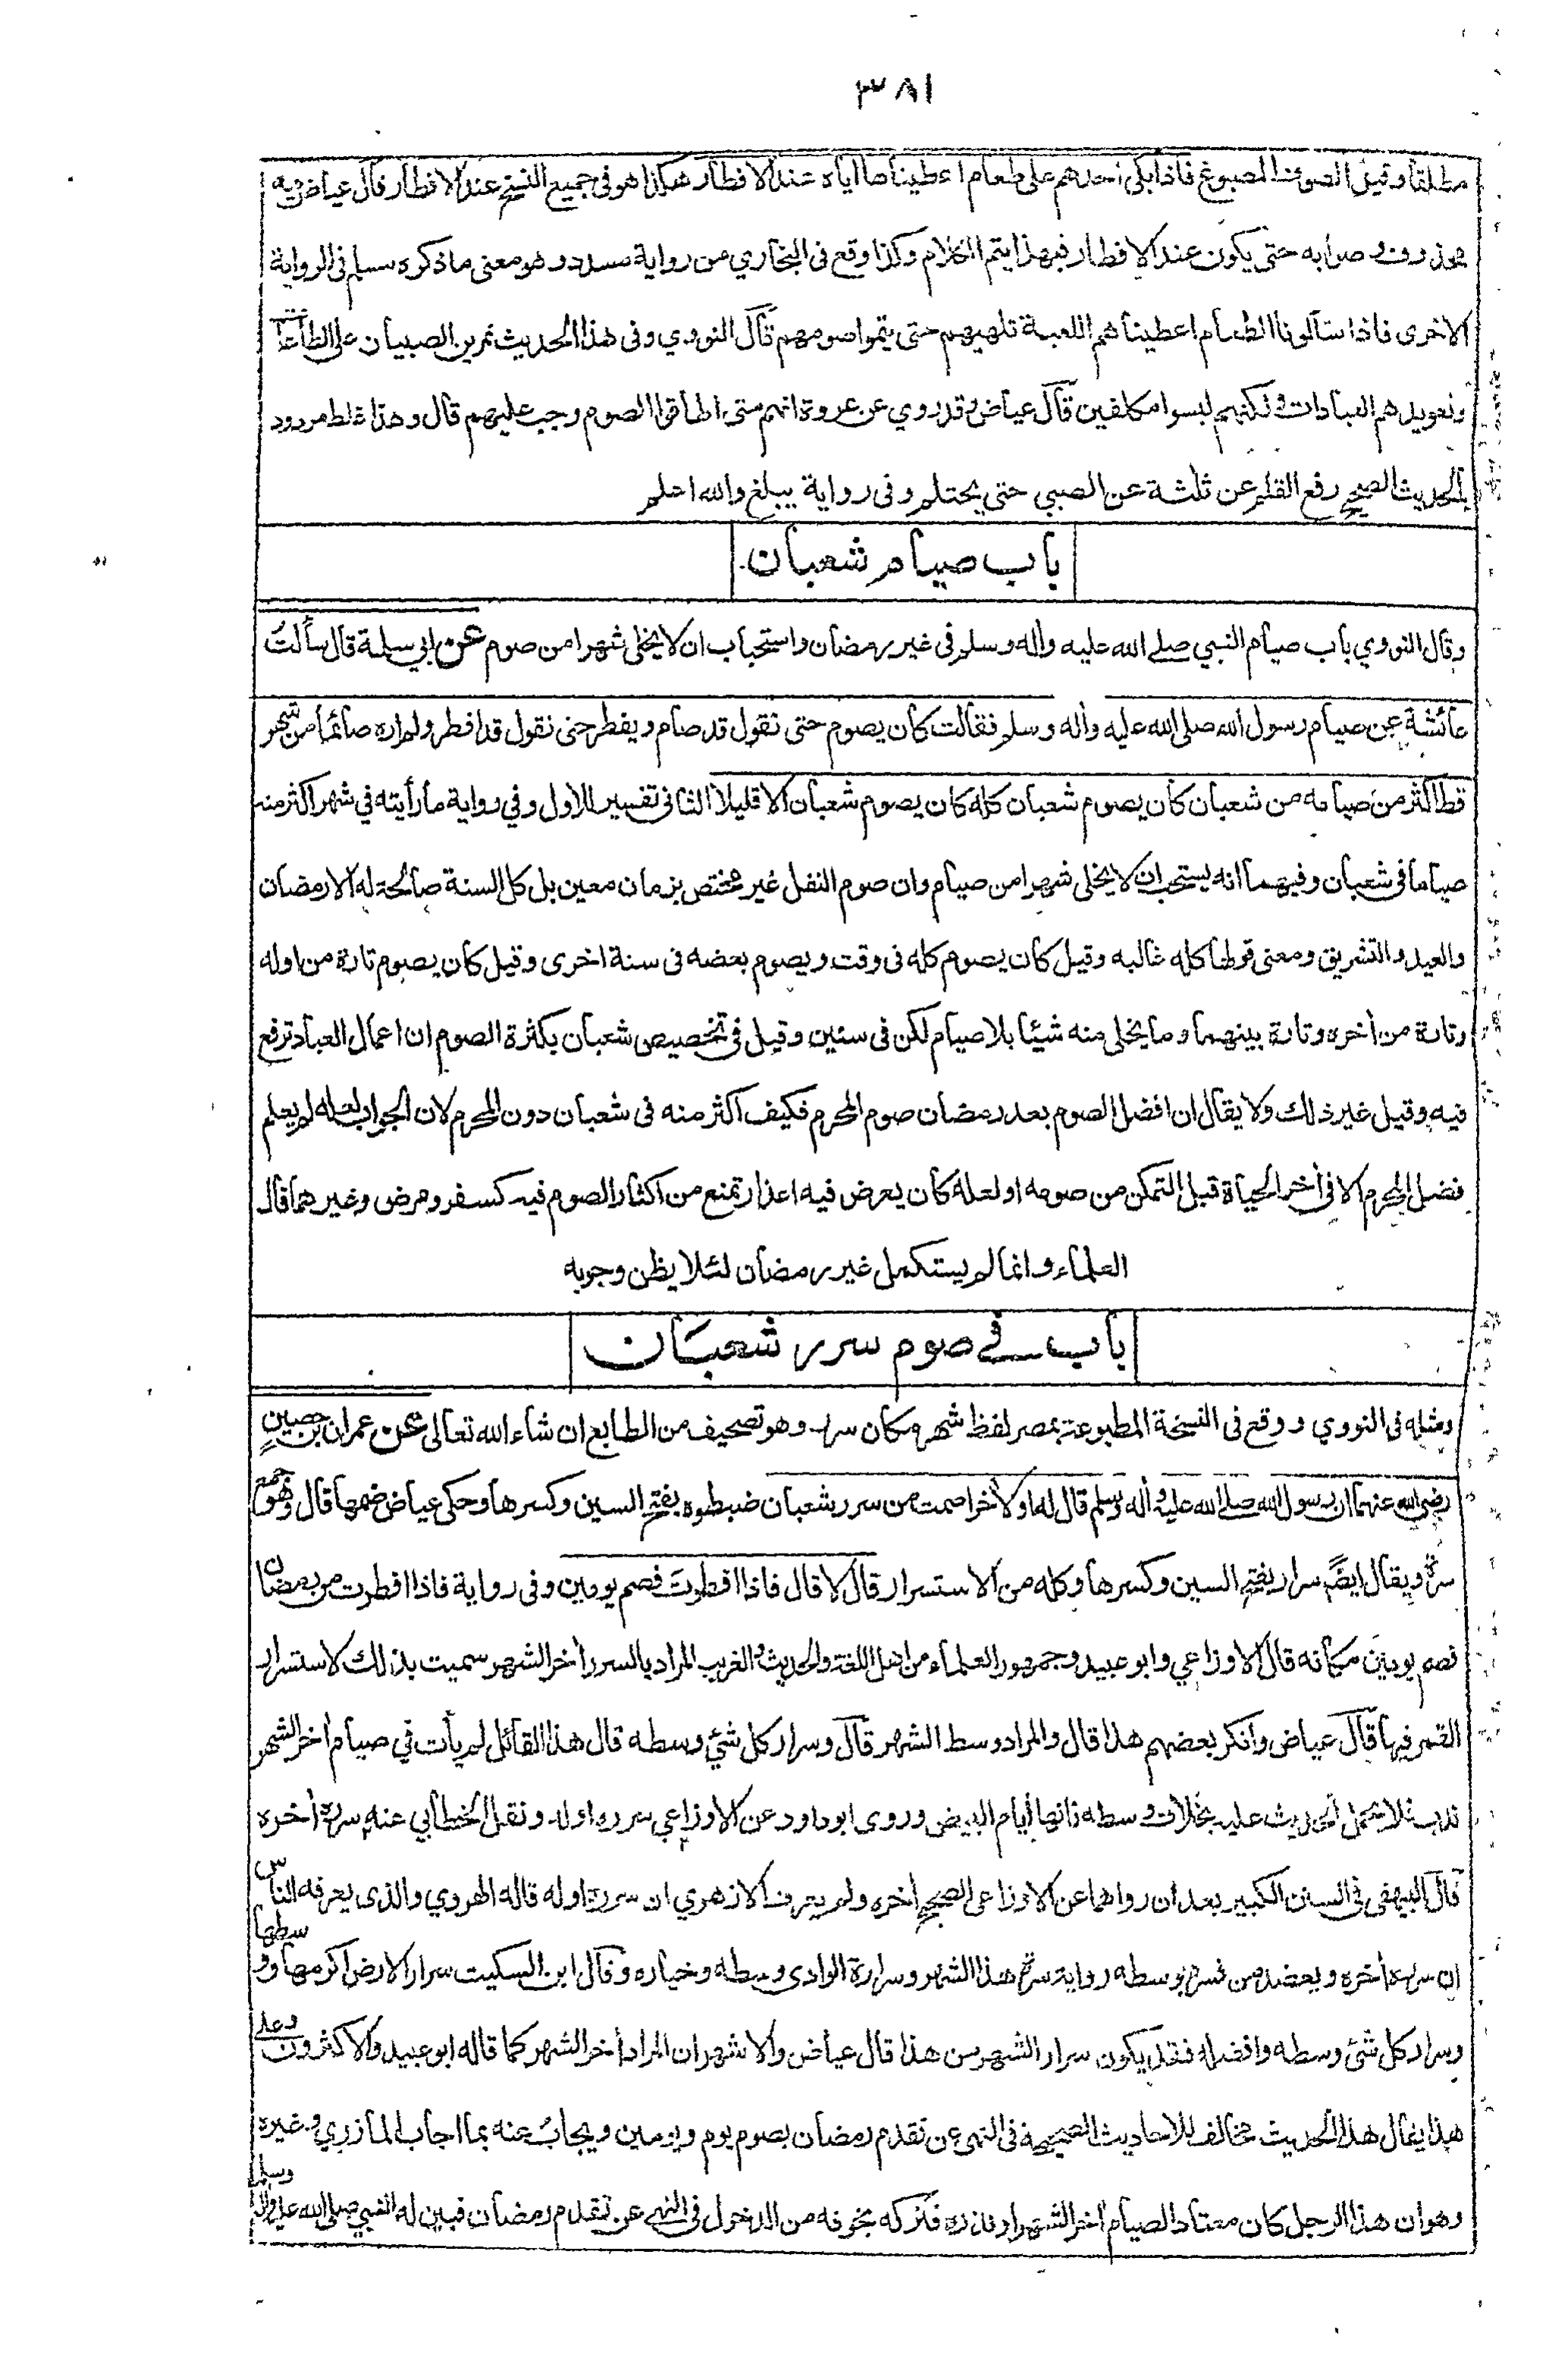 ٣٨١
مطلقا وقيل الصوف المصبوغ فاذا بكى احدهم على طعام اعطيناها اياه عند الافطار هكذا هو في جميع النسخ عند الافطار قال عياض فيه
محذوف وصوابه حتى يكون عند الافطار فبهذا يتم الكلام وكذا وقع في البخاري من رواية مسدد وهو معنى ما ذكره مسلم في الرواية
الاخرى فاذا سألونا الطعام اعطيناهم اللعبة تلهيهم حتى يتموا صومهم قال النووي وفي هذا الحديث تمرين الصبيان على الطاعات
وتعويدهم العبادات ولكنهم ليسوا مكلفين قال عياض وقد روي عن عروة انهم متى اطاقوا الصوم وجب عليهم قال وهذا غلط مردود
بالحديث الصحيح رفع القلم عن ثلثة عن الصبي حتى يحتلم وفي رواية يبلغ والله اعلم
باب صيام شعبان
وقال النووي باب صيام النبي صلى الله عليه واله وسلم في غير رمضان واستحباب ان لا يخلي شهرا من صوم عن ابي سلمة قال سألت
عائشة عن صيام رسول الله صلى الله عليه واله وسلم فقالت كان يصوم حتى نقول قد صام ويفطر حتى نقول قد افطر ولم اره صائما من شهر
قط اكثر من صيامه من شعبان كان يصوم شعبان كله كان يصوم شعبان الا قليلا الثاني تفسير للاول وفي رواية ما رأيته في شهر اكثر منه
صياما في شعبان وفيهما انه يستحب ان لا يخلي شهرا من صيام وان صوم النفل غير مختص بزمان معين بل كل السنة صالحة له الا رمضان
والعيد والتشريق ومعنى قولها كله غالبه وقيل كان يصوم كله في وقت ويصوم بعضه في سنة اخرى وقيل كان يصوم تارة من اوله
وتارة من أخره وتارة بينهما وما يخلي منه شيئا بلا صيام لكن في سنين وقيل في تخصيص شعبان بكثرة الصوم ان اعمال العباد ترفع
فيه وقيل غير ذلك ولا يقال ان افضل الصوم بعد رمضان صوم المحرم فكيف اكثر منه في شعبان دون المحرم لان الجواب لعله لم يعلم
فضل المحرم الا في أخر الحياة قبل التمكن من صومه او لعله كان يعرض فيه اعذار تمنع من اكثار الصوم فيه كسفر ومرض وغيرهما قال
العلماء وانما لم يستكمل غير رمضان لئلا يظن وجوبه
باب في صوم سرر شعبان
ومثله في النووي ووقع في النسخة المطبوعة بمصر لفظ شهر مكان سرر وهو تصحيف من الطابع ان شاء الله تعالى عن عمران بن حصين
رضي الله عنهما ان رسول الله صلى الله عليه وأله وسلم قال له او لأخر اصمت من سرر شعبان ضبطوه بفتح السين وكسرها وحكى عياض ضمها قال وهو جمع
سرة ويقال ايضا سرار بفتح السين وكسرها وكله من الاستسرار قال لا قال فاذا افطرت فصم يومين وفي رواية فاذا افطرت من رمضان
فصم يومين مكانه قال الاوزاعي وابو عبيد وجمهور العلماء من اهل اللغة والحديث والغريب المراد بالسرر أخر الشهر سميت بذلك لاستسرار
القمر فيها قال عياض وانكر بعضهم هذا قال والمراد وسط الشهر قال وسرار كل شئ وسطه قال هذا القائل لم يأت في صيام أخر الشهر
ندب فلا يحمل الحديث عليه بخلاف وسطه فانها أيام البيض وروى ابو داود عن الاوزاعي سرره اوله ونقل الخطابي عنه سرره أخره
قال البيهقي في السنن الكبير بعد ان رواهما عن الاوزاعي الصحيح أخره ولم يعرف الازهري ان سرره اوله قاله الهروي والذي يعرفه الناس
ان سرره أخره ويعضد من فسره بوسطه رواية سرة هذا الشهر وسرارة الوادي وسطه وخياره وقال ابن السكيت سرار الارض اكرمها ووسطها
وسرار كل شئ وسطه وافضله فقد يكون سرار الشهر من هذا قال عياض والاشهر ان المراد أخر الشهر كما قاله ابو عبيد والاكثرون وعلى
هذا يقال هذا الحديث مخالف للاحاديث الصحيحة في النهي عن تقدم رمضان بصوم يوم ويومين ويجاب عنه بما اجاب المازري وغيره
وهو ان هذا الرجل كان معتاد الصيام أخر الشهر او نذره فتركه بخوفه من الدخول في النهي عن تقدم رمضان فبين له النبي صلى الله عليه واله وسلم